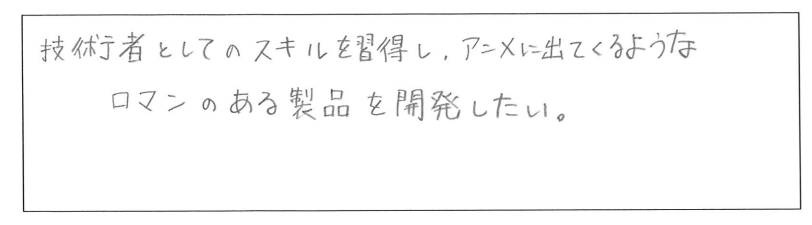 技術者としてのスキルを習得し、アニメに出てくるような
ロマンのある製品を開発したい。